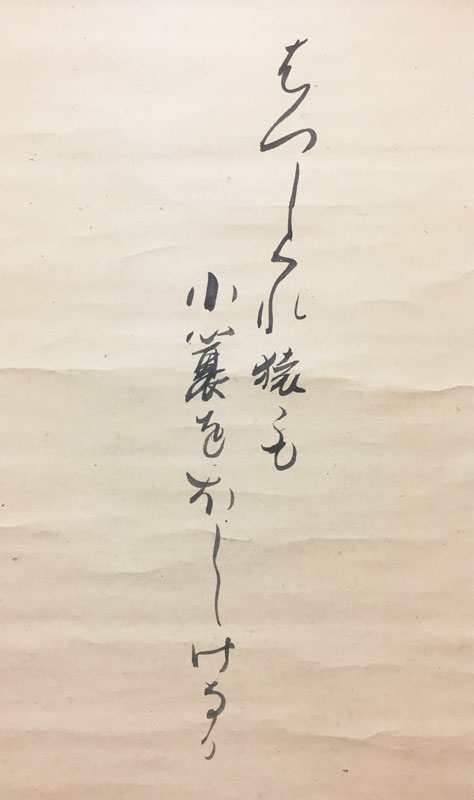 はつしくれ猿も
小簔をほしけなり